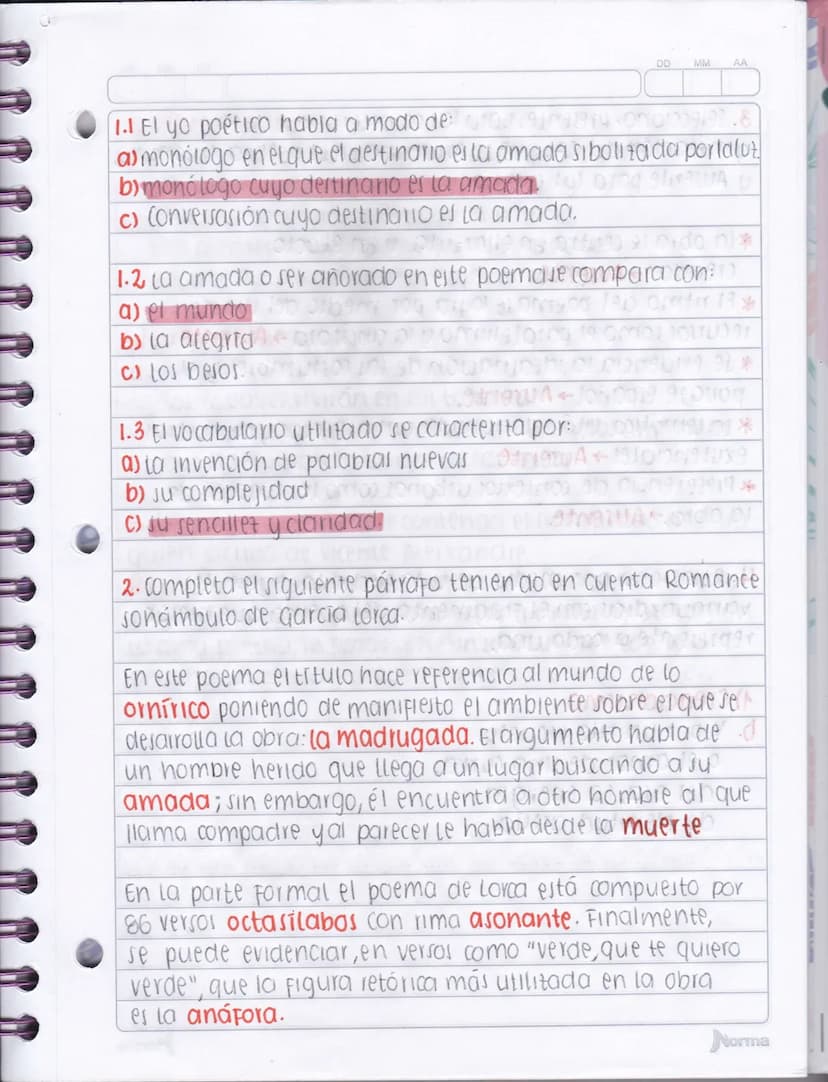 DD MM AA
1.1 El yo poético habla a modo de:
a) monólogo en el que el destinario es la amada sibolizada por la luz.
b) monólogo cuyo destinario es la amada.
c) Conversación cuyo destinario es la amada.
1.2 La amada o ser añorado en este poema se compara con:
a) el mundo
b) la alegría
c) los besos.
1.3 El vocabulario utilizado se caracteriza por:
a) la invención de palabras nuevas
b) su complejidad
c) su sencillez y claridad.
2. Completa el siguiente párrafo teniendo en cuenta Romance
sonámbulo de García Lorca.
En este poema el título hace referencia al mundo de lo
ornírico poniendo de manifiesto el ambiente sobre el que se
desarrolla la obra: la madrugada. El argumento habla de
un hombre herido que llega a un lugar buscando a su
amada; sin embargo, él encuentra a otro hombre al que
llama compadre y al parecer le habla desde la muerte
En la parte Formal el poema de Lorca está compuesto por
86 versos octasílabos con rima asonante. Finalmente,
se puede evidenciar, en versos como "verde, que te quiero
verde", que la figura retórica más utilizada en la obra
es la anáfora.
Norma